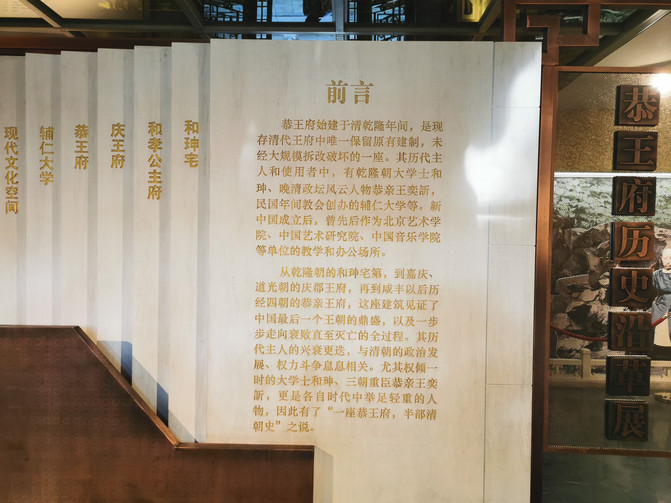 现代文化空间
辅仁大学
恭王府
庆王府
和孝公主府
和珅宅
前言
恭王府始建于清乾隆年间，是现
存清代王府中唯一保留原有建制，未
经大规模拆改破坏的一座。其历代主
人和使用者中，有乾隆朝大学士和
珅、晚清政坛风云人物恭亲王奕訢，
民国年间教会创办的辅仁大学等。新
中国成立后，曾先后作为北京艺术学
院、中国艺术研究院、中国音乐学院
等单位的教学和办公场所。
从乾隆朝的和珅宅第，到嘉庆、
道光朝的庆郡王府，再到咸丰以后历
经四朝的恭亲王府，这座建筑见证了
中国最后一个王朝的鼎盛，以及一步
步走向衰败直至灭亡的全过程。其历
代主人的兴衰更迭，与清朝的政治发
展、权力斗争息息相关。尤其权倾一
时的大学士和珅、三朝重臣恭亲王奕
訢，更是各自时代中举足轻重的人
物，因此有了“一座恭王府，半部清
朝史”之说。
恭王府历史沿革展